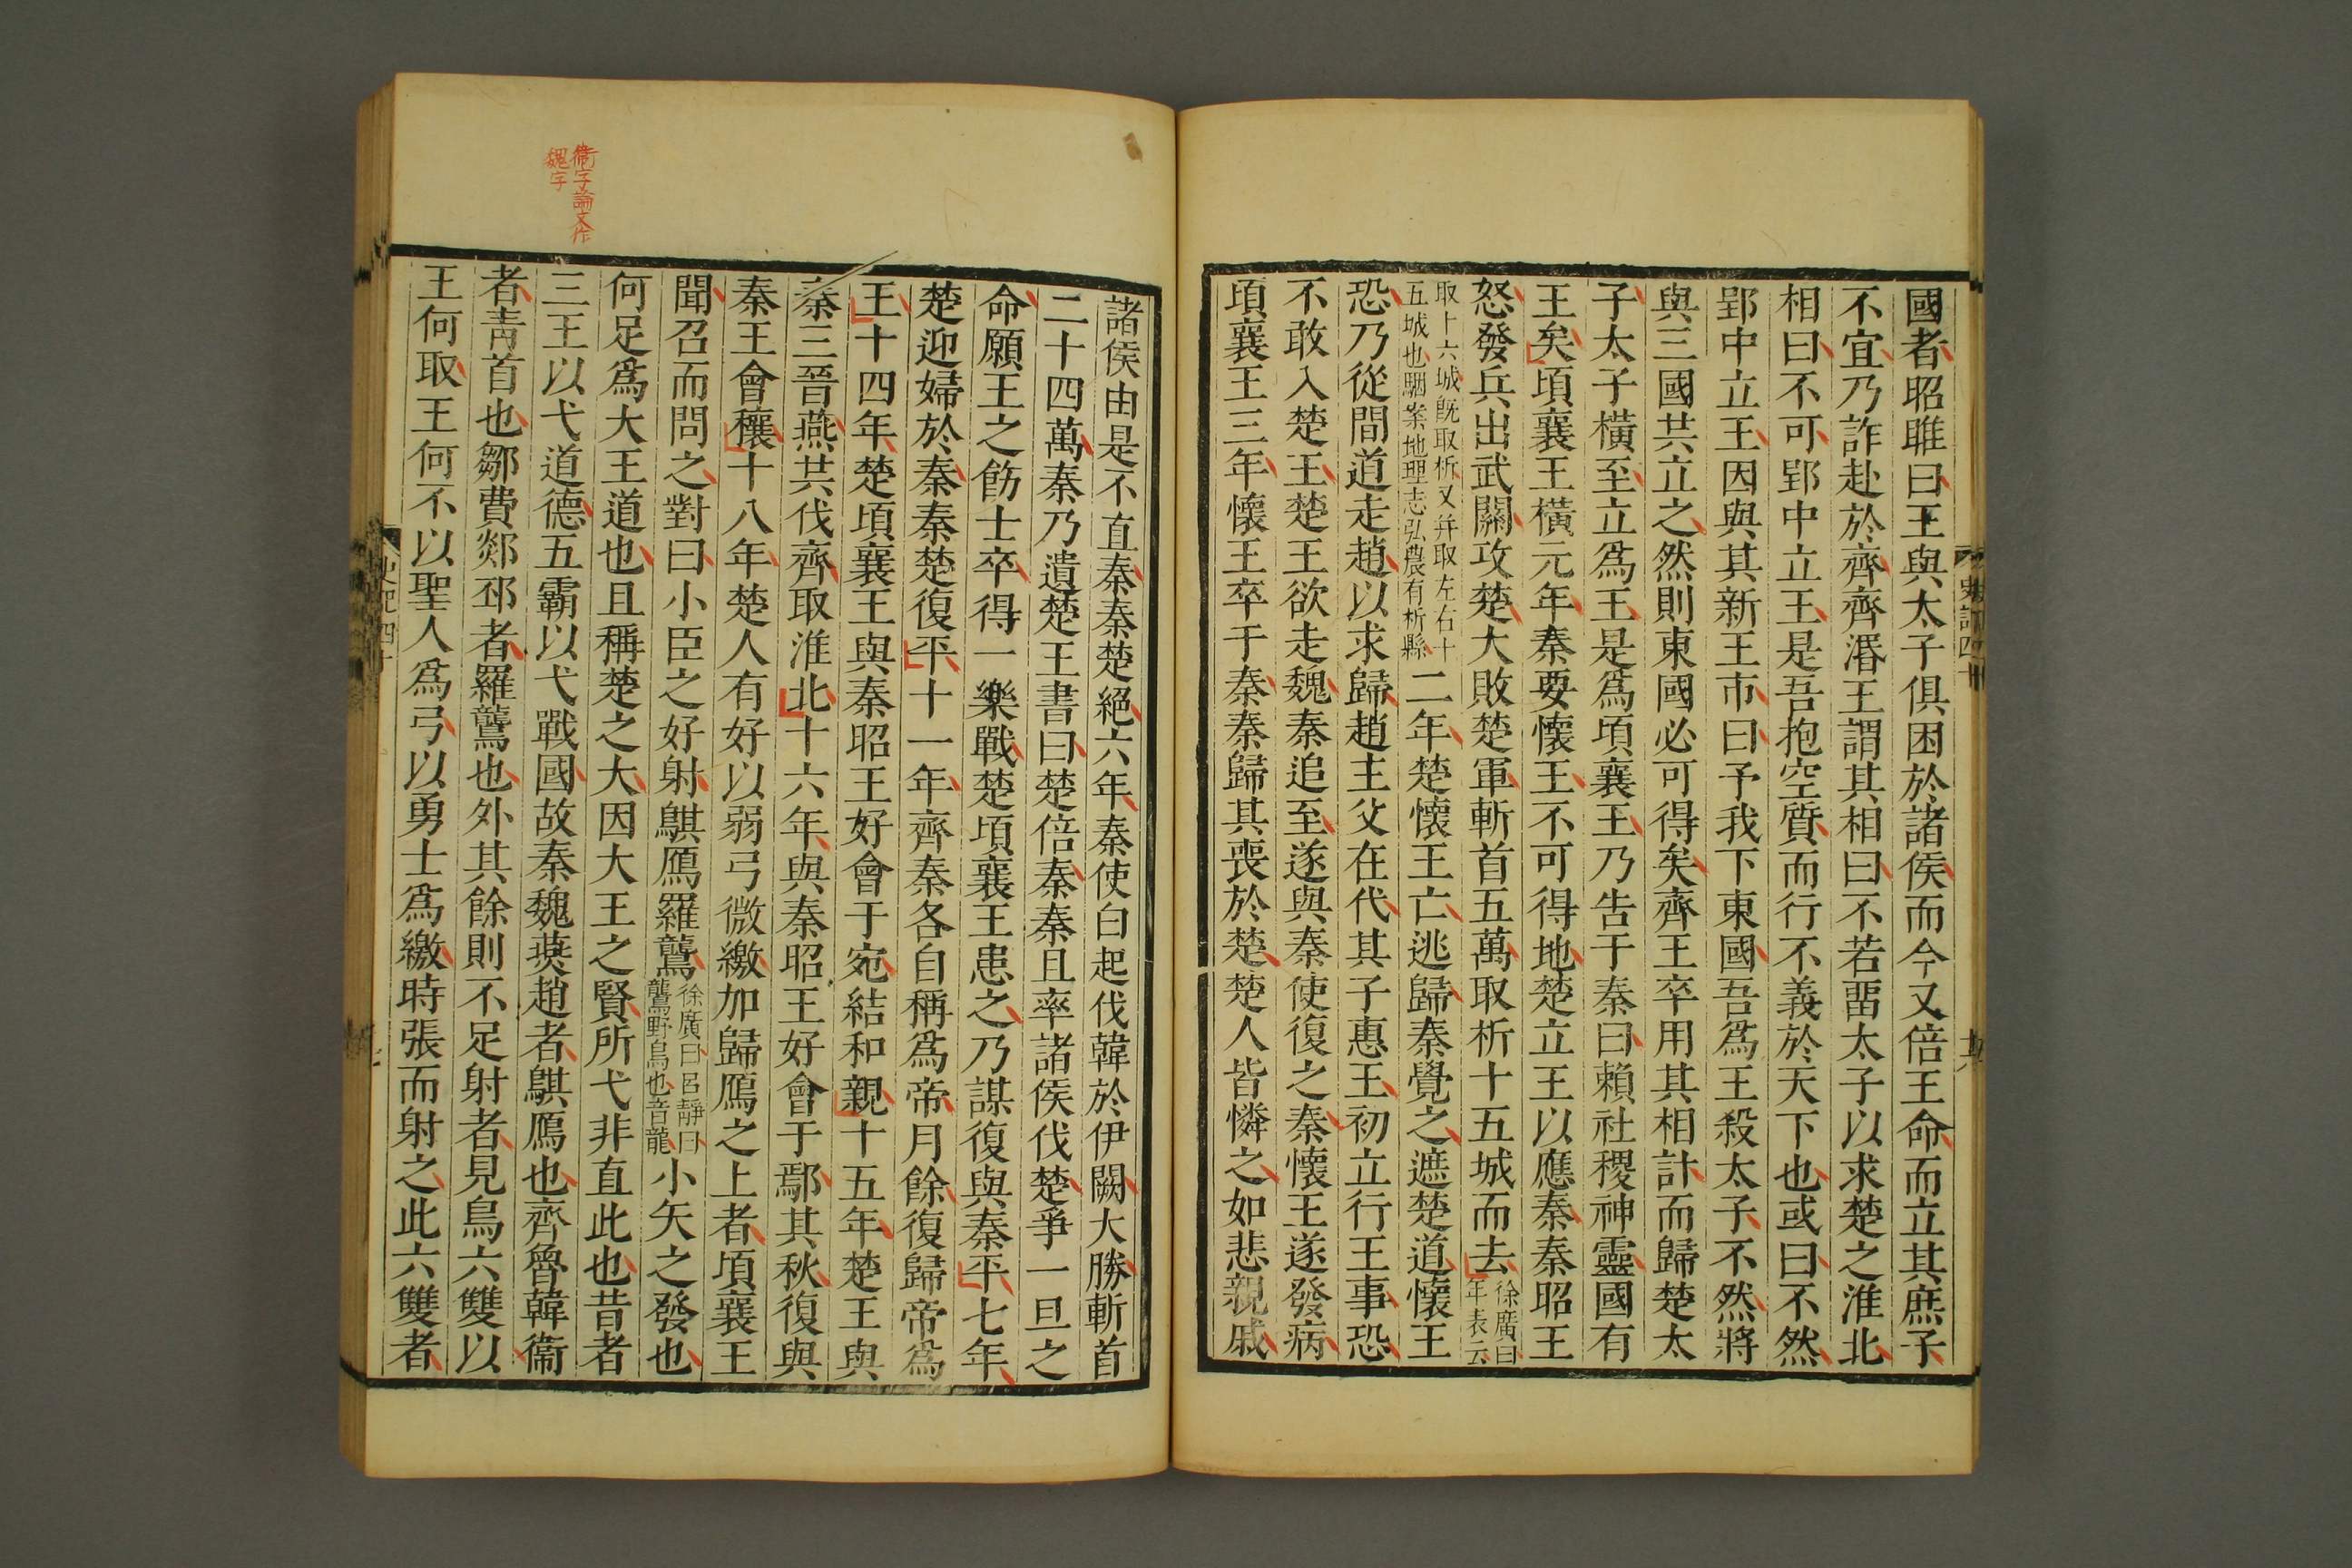 國者昭雎曰王與太子俱困於諸侯而今又倍王命而立其庶子
不宜乃詐赴於齊齊湣王謂其相曰不若畱太子以求楚之淮北
相曰不可郢中立王是吾抱空質而行不義於天下也或曰不然
郢中立王因與其新王市曰予我下東國吾爲王殺太子不然將
與三國共立之然則東國必可得矣齊王卒用其相計而歸楚太
子太子橫至立爲王是爲頃襄王乃告于秦曰賴社稷神靈國有
王矣頃襄王橫元年秦要懷王不可得地楚立王以應秦秦昭王
怒發兵出武關攻楚大敗楚軍斬首五萬取析十五城而去徐廣曰年表云
取十六城旣取析又幷取左右十五城也駰案地理志弘農有析縣二年楚懷王亡逃歸秦覺之遮楚道懷王
恐乃從間道走趙以求歸趙主父在代其子惠王初立行王事恐
不敢入楚王楚王欲走魏秦追至遂與秦使復之秦懷王遂發病
頃襄王三年懷王卒于秦秦歸其喪於楚楚人皆憐之如悲親戚
史記四十
諸侯由是不直秦秦楚絕六年秦使白起伐韓於伊闕大勝斬首
二十四萬秦乃遺楚王書曰楚倍秦秦且率諸侯伐楚爭一旦之
命願王之飭士卒得一樂戰楚頃襄王患之乃謀復與秦平七年
楚迎婦於秦秦楚復平十一年齊秦各自稱爲帝月餘復歸帝爲
王十四年楚頃襄王與秦昭王好會于宛結和親十五年楚王與
秦三晉燕共伐齊取淮北十六年與秦昭王好會于鄢其秋復與
秦王會穰十八年楚人有好以弱弓微繳加歸鴈之上者頃襄王
聞召而問之對曰小臣之好射鶀鴈羅鸗徐廣曰呂靜曰鸗野鳥也音龍小矢之發也
何足爲大王道也且稱楚之大因大王之賢所弋非直此也昔者
三王以弋道德五霸以弋戰國故秦魏燕趙者鶀鴈也齊魯韓衞
者靑首也鄒費郯邳者羅鸗也外其餘則不足射者見鳥六雙以
王何取王何不以聖人爲弓以勇士爲繳時張而射之此六雙者
史記四十
衞字論文作
魏字